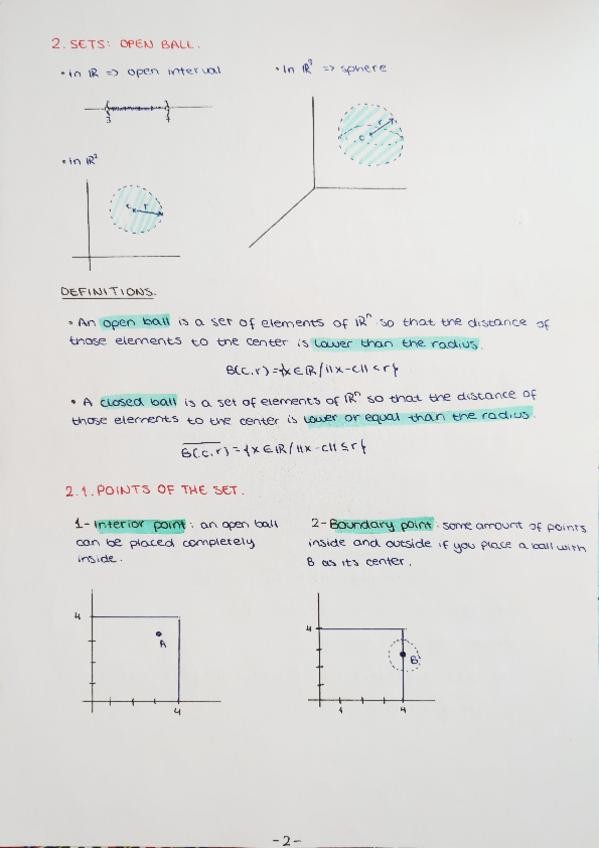 2. SETS: OPEN BALL.
• In ℝ => open interval
3 7
• In ℝ²
c r
• In ℝ³ => sphere
c r
DEFINITIONS.
• An open ball is a set of elements of ℝⁿ so that the distance of
those elements to the center is lower than the radius.
B(c,r)={x∈ℝ/||x-c||<r}
• A closed ball is a set of elements of ℝⁿ so that the distance of
those elements to the center is lower or equal than the radius.
B(c,r)={x∈ℝ/||x-c||≤r}
2.1. POINTS OF THE SET.
1- Interior point: an open ball
can be placed completely
inside.
4
A
4
2- Boundary point: some amount of points
inside and outside if you place a ball with
B as its center.
4
B
1 4
-2-